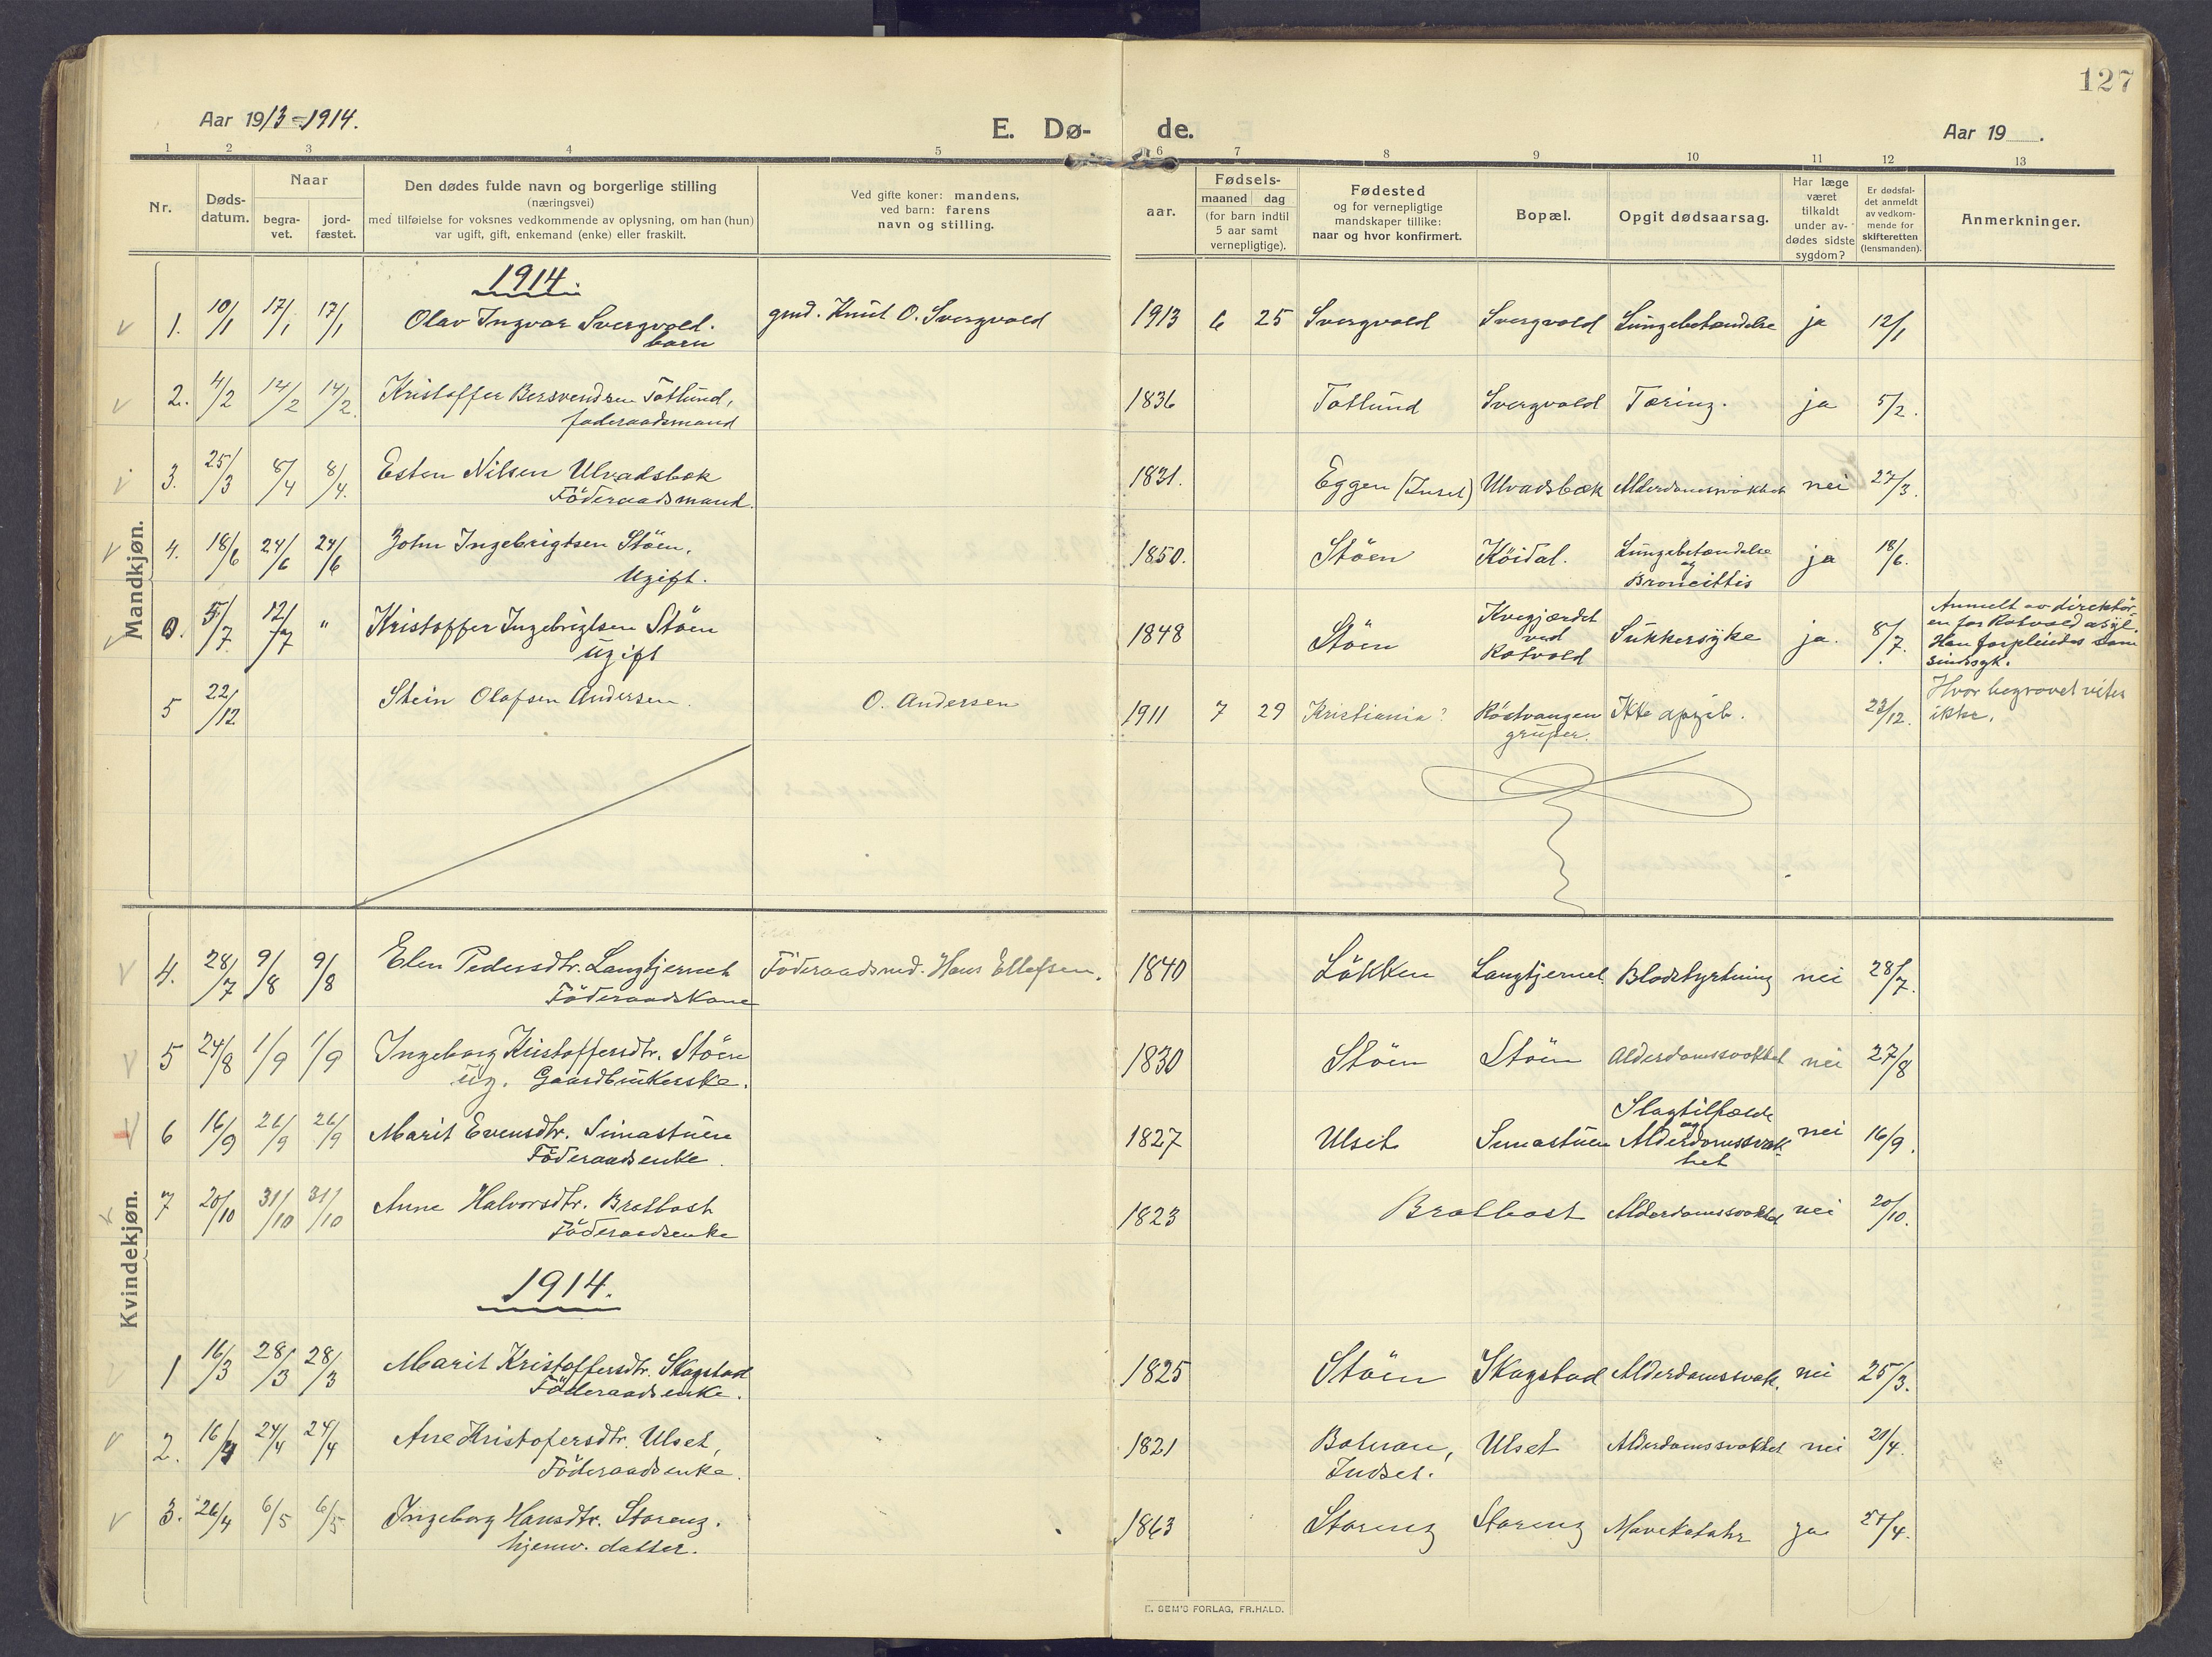 127
Aar 1913-1914.
E. Dø- de.
Aar 19 .
1 2 3 4 5 6 7 8 9 10 11 12 13
Nr.
Døds-
datum.
Naar
begra-
vet.
jord-
fæstet.
Den dødes fulde navn og borgerlige stilling
(næringsvei)
med tilføielse for voksnes vedkommende av oplysning, om han (hun)
var ugift, gift, enkemand (enke) eller fraskilt.
Ved gifte koner: mandens,
ved barn: farens
navn og stilling.
Fødsels-
aar.
maaned dag
(for barn indtil
5 aar samt
vernepligtige).
Fødested
og for vernepligtige
mandskaper tillike:
naar og hvor konfirmert.
Bopæl.
Opgit dødsaarsag.
Har læge
været
tilkaldt
under av-
dødes sidste
sygdom?
Er dødsfal-
det anmeldt
av vedkom-
mende for
skifteretten
(lensmanden).
Anmerkninger.
Mandkjøn.
1914.
1. 10/1 17/1 17/1 Olav Ingvar Svergvold. gmd. Knut O. Svergvold 1913 6 25 Svergvold Svergvold Lungebetændelse ja 12/1
barn
2. 4/2 14/2 14/2. Kristoffer Bersvendsen Tøtlund, 1836 Tøtlund Svergvold Tæring. ja 5/2.
føderaadsmand
3. 25/3 8/4 8/4. Esten Nilsen Ulvadsbæk 1831. Eggen (Inset) Ulvadsbæk Alderdomssvakhet nei 27/3.
Föderaadsmand.
4. 18/6 24/6 24/6 John Ingebrigtsen Stöen. 1850. Stöen Köidal. Lungebetændelse ja 18/6.
og
Ugift. Broncittis
0. 5/7 12/7 " Kristoffer Ingebrigtsen Stöen 1848 Stöen Sukkersyke ja. 8/7.
ugift
ved
Rotvold
Anmelt av direktör-
en for Rotvold asyl.
Han forpleiedes som
sindssyk.
5 22/12 Stein Olafsen Andersen. O. Andersen 1911 7 29 Kristiania? Röstvangen Ikke opgit. 23/12.
gruber.
Hvor begravet vites
ikke.
Kvindekjøn.
4. 28/7 9/8 9/8 Elen Pedersdtr. Langtjernet Föderaadsmd. Hans Ellefsen. 1840 Lökken Langtjernet Blodstyrtning nei 28/7.
Föderaadskone
5 24/8 1/9 1/9 Ingeborg Kristoffersdtr. Stöen 1830 Stöen Stöen Alderdomssvakhet nei 27/8
ug. Gaardbrukerske.
6 16/9 26/9 26/9 Marit Evensdtr. Simastuen 1827 Ulset Simastuen Slagtilfælde nei 16/9.
og
Föderaadsenke. Alderdomssvak-
het
7 20/10 31/10 31/10 Anne Halvorsdtr. Bratbost 1823 Bratbost Alderdomssvakhet nei 20/10.
Föderaadsenke
1914.
1 16/3 28/3 28/3 Marit Kristoffersdtr. Skogstad 1825 Stöen Skogstad Alderdomssvak. nei 25/3.
Föderaadsenke.
2. 16/4 24/4 24/4 Ane Kristofersdtr. Ulset, 1821 Ulset Alderdomssvakhet nei 21/4.
Föderaadsenke. Indset.
3. 26/4 6/5 6/5 Ingeborg Hansdtr. Storeng. 1863 Storeng Storeng Mavekatahr ja 27/4.
hjemv. datter.
E. SEM'S FORLAG, FR.HALD.